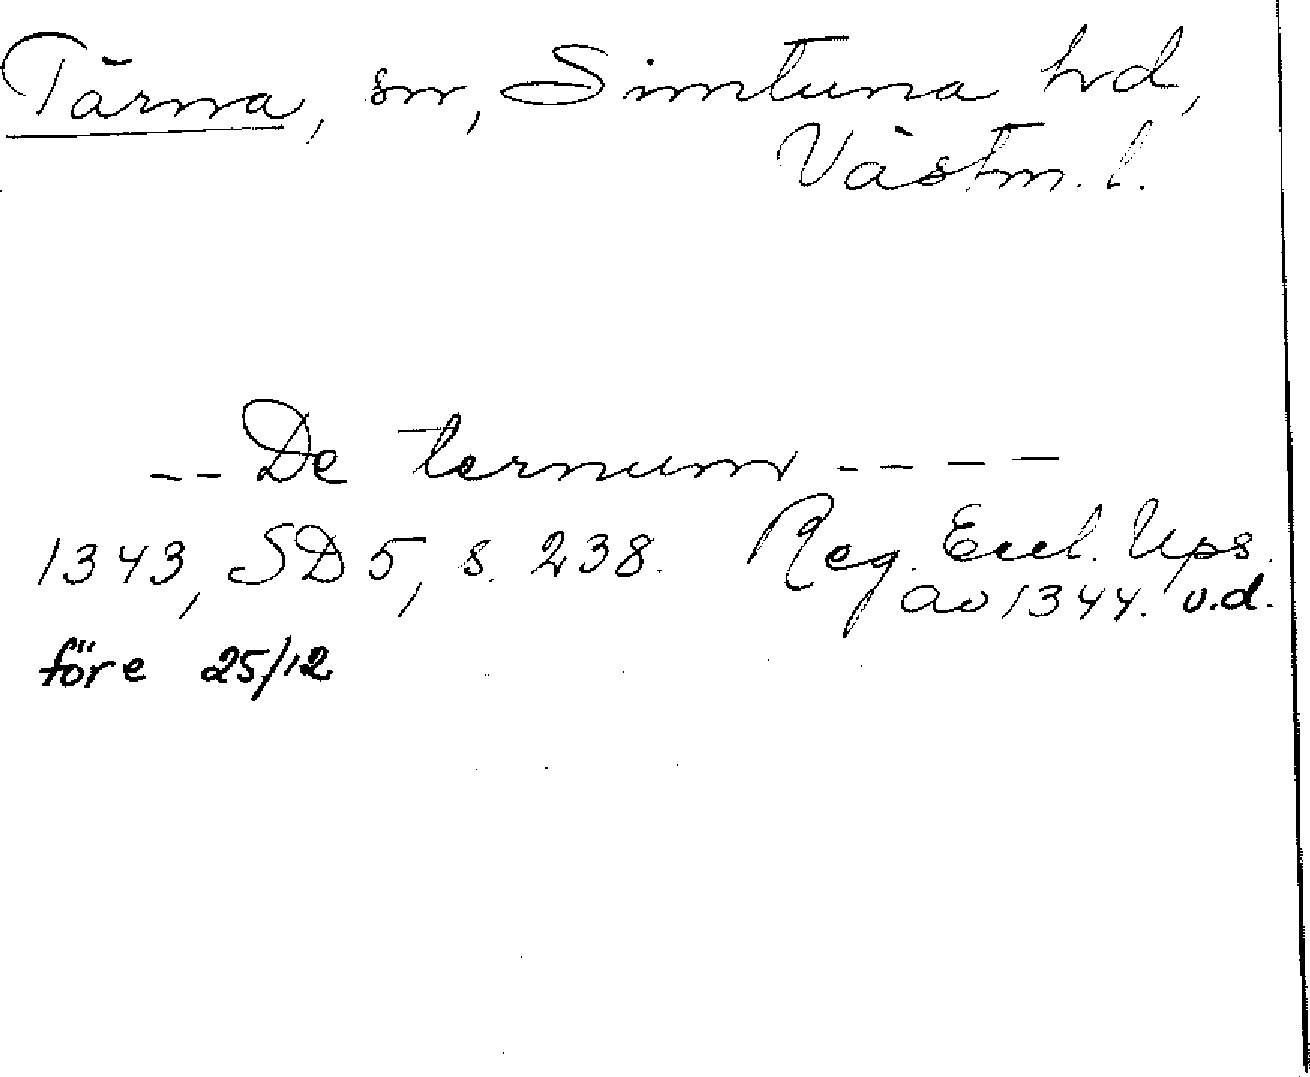 Tärna, sn, Simtuna hd,
Västm. l.
-- De ternum ----
1343, SD 5, s. 238. Reg. Eccl. Ups.
av 1344. u.d.
före 25/12